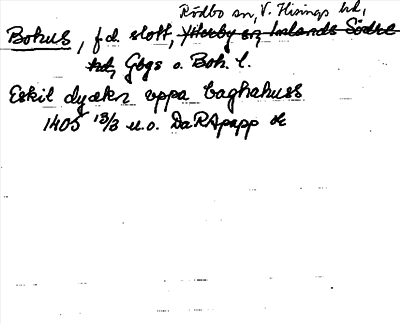 Rödbo sn, V. Hisings hd,
Bohus, f.d. slott, Ytterby sn, Inlands Södre
hd, Gbgs o. Boh. l.
Eskil dyækn oppa baghahuss
1405 13/3 u.o. DaRApapp or